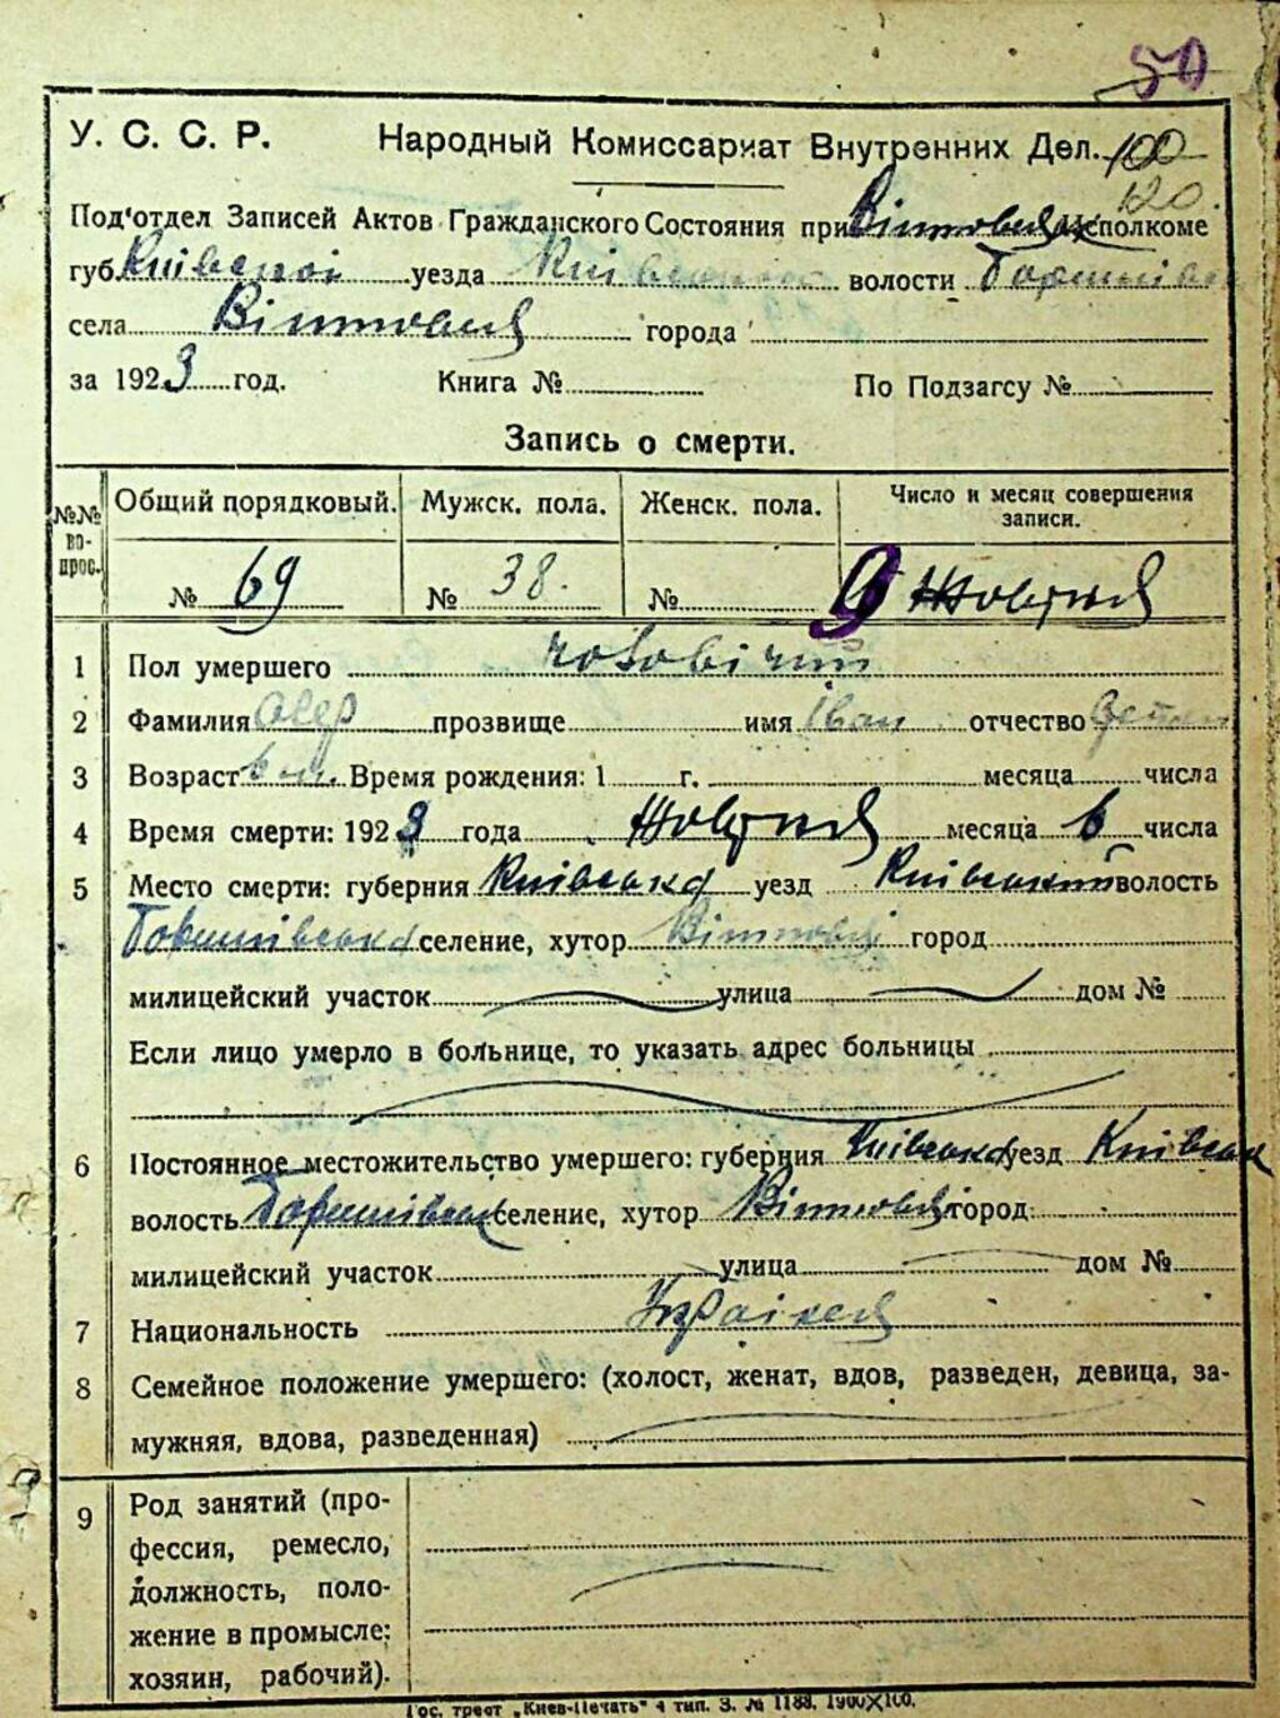 50
У. С. С. Р. Народный Комиссариат Внутренних Дел. 100
120
Под'отдел Записей Актов Гражданского Состояния при Исполкоме
губ. Київской уезда волости
села города
за 1923 год. Книга № По Подзагсу №
Запись о смерти.
№№ вопрос. Общий порядковый. Мужск. пола. Женск. пола. Число и месяц совершения записи.
№ 69 № 38. № 9 Жовтня
1 Пол умершего чоловічий
2 Фамилия прозвище имя Іван отчество
3 Возраст Время рождения: 1 г. месяца числа
4 Время смерти: 1923 года Жовтня месяца 6 числа
5 Место смерти: губерния Київська уезд Київський волость
селение, хутор город
милицейский участок улица дом №
Если лицо умерло в больнице, то указать адрес больницы
6 Постоянное местожительство умершего: губерния Київська уезд Київськ
волость селение, хутор город
милицейский участок улица дом №
7 Национальность
8 Семейное положение умершего: (холост, женат, вдов, разведен, девица, за-
мужняя, вдова, разведенная)
9 Род занятий (про-
фессия, ремесло,
должность, поло-
жение в промысле:
хозяин, рабочий).
Гос. трест „Киев-Печать" 4 тип. З. № 1188. 1900X100.